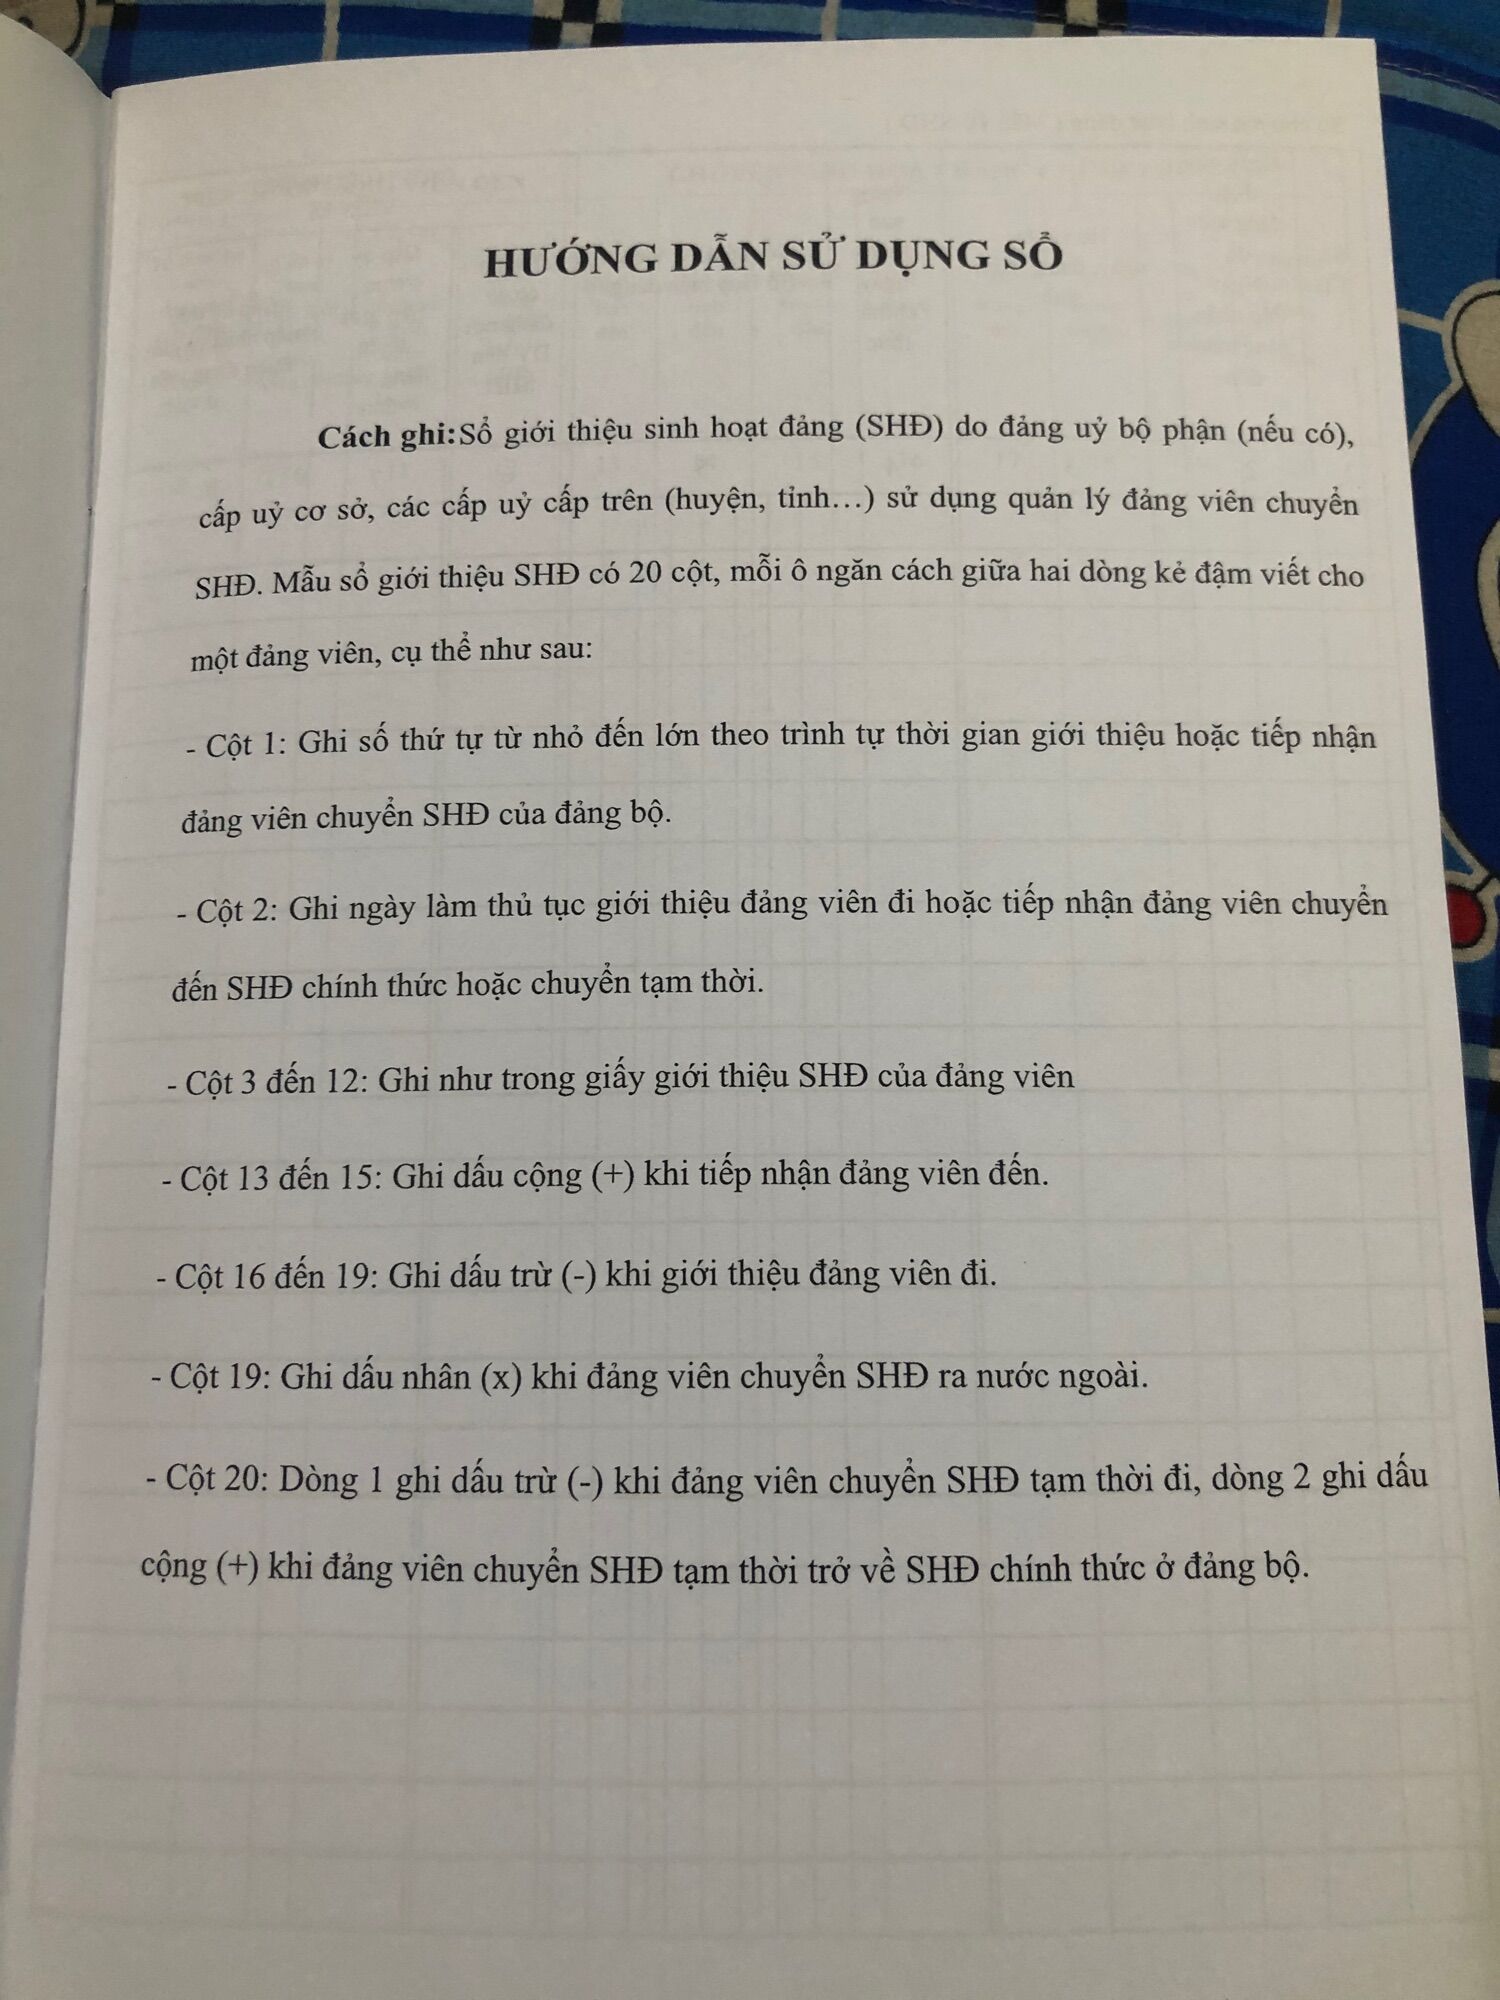 HƯỚNG DẪN SỬ DỤNG SỔ
Cách ghi:Sổ giới thiệu sinh hoạt đảng (SHĐ) do đảng uỷ bộ phận (nếu có),
cấp uỷ cơ sở, các cấp uỷ cấp trên (huyện, tỉnh…) sử dụng quản lý đảng viên chuyển
SHĐ. Mẫu sổ giới thiệu SHĐ có 20 cột, mỗi ô ngăn cách giữa hai dòng kẻ đậm viết cho
một đảng viên, cụ thể như sau:
- Cột 1: Ghi số thứ tự từ nhỏ đến lớn theo trình tự thời gian giới thiệu hoặc tiếp nhận
đảng viên chuyển SHĐ của đảng bộ.
- Cột 2: Ghi ngày làm thủ tục giới thiệu đảng viên đi hoặc tiếp nhận đảng viên chuyển
đến SHĐ chính thức hoặc chuyển tạm thời.
- Cột 3 đến 12: Ghi như trong giấy giới thiệu SHĐ của đảng viên
- Cột 13 đến 15: Ghi dấu cộng (+) khi tiếp nhận đảng viên đến.
- Cột 16 đến 19: Ghi dấu trừ (-) khi giới thiệu đảng viên đi.
- Cột 19: Ghi dấu nhân (x) khi đảng viên chuyển SHĐ ra nước ngoài.
- Cột 20: Dòng 1 ghi dấu trừ (-) khi đảng viên chuyển SHĐ tạm thời đi, dòng 2 ghi dấu
cộng (+) khi đảng viên chuyển SHĐ tạm thời trở về SHĐ chính thức ở đảng bộ.